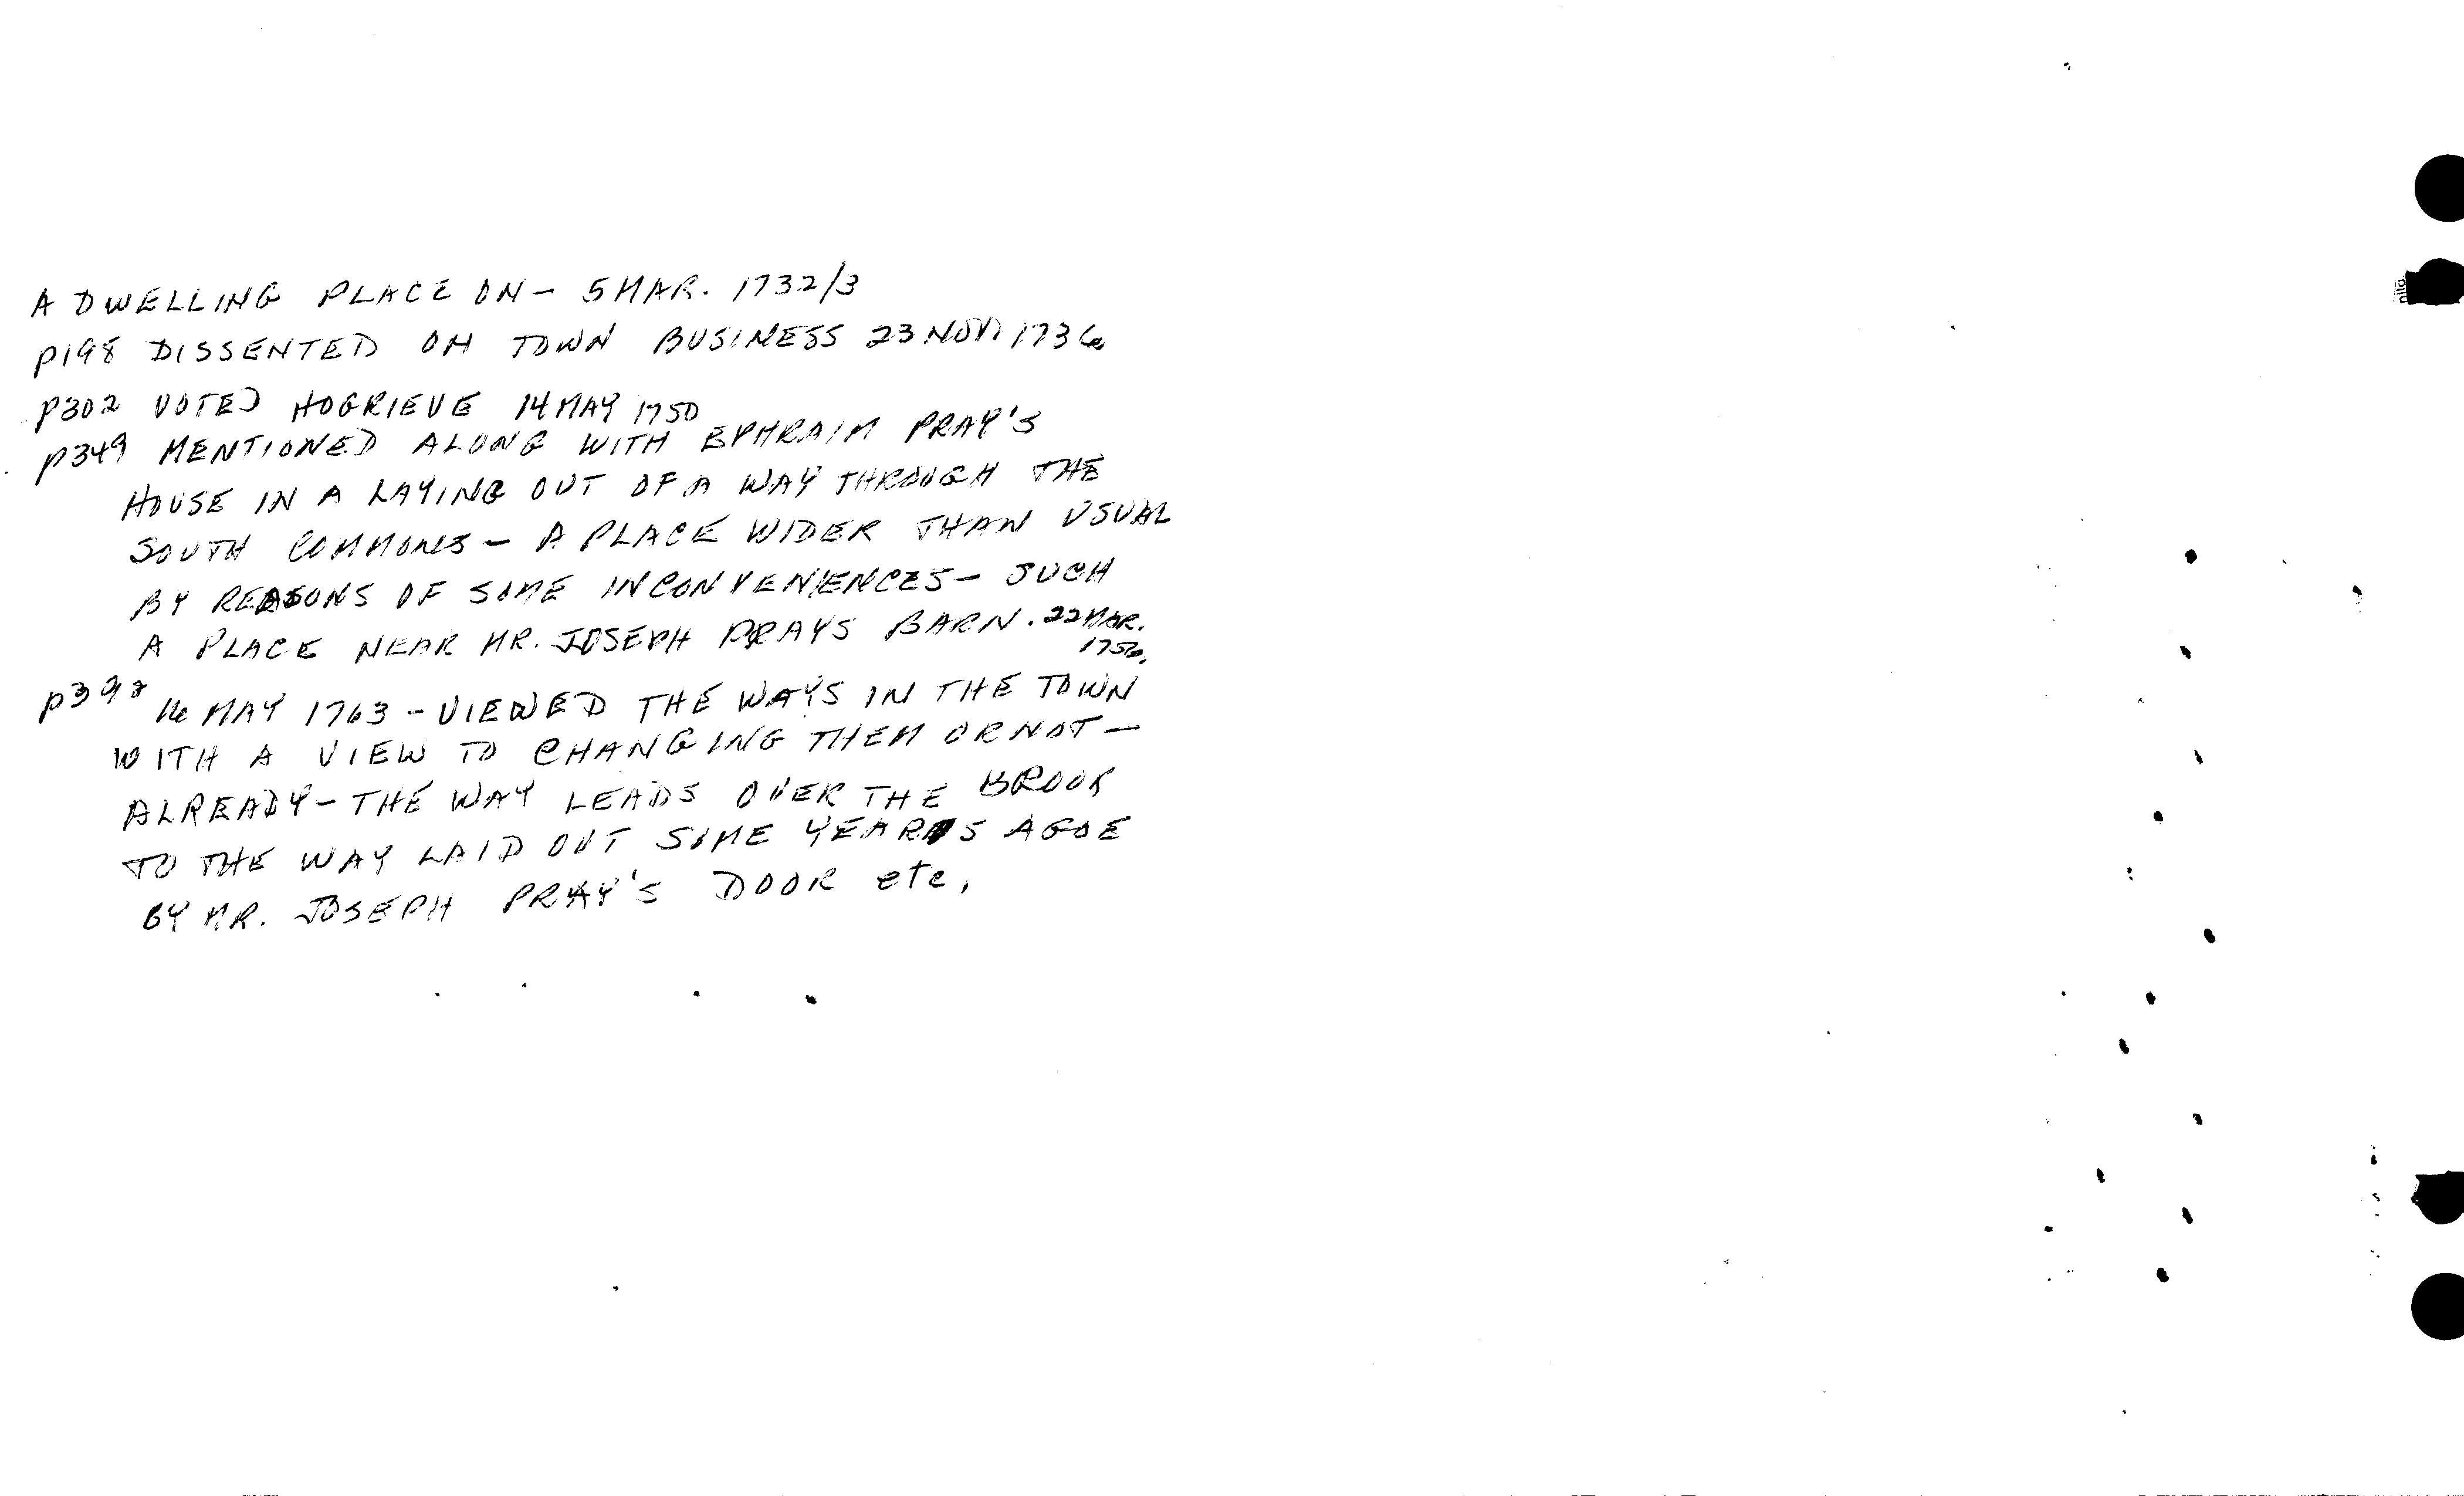 A DWELLING PLACE ON - 5 MAR. 1732/3
p198 DISSENTED ON TOWN BUSINESS 23 NOV 1736
p302 VOTED HOGRIEVE 14 MAY 1750
p349 MENTIONED ALONG WITH EPHRAIM PRAY'S
HOUSE IN A LAYING OUT OF A WAY THROUGH THE
SOUTH COMMONS - A PLACE WIDER THAN USUAL
BY REASONS OF SOME INCONVENIENCES - SUCH
A PLACE NEAR MR. JOSEPH PRAYS BARN. 22 MAR.
1756.
p392 16 MAY 1763 - VIEWED THE WAYS IN THE TOWN
WITH A VIEW TO CHANGING THEM OR NOT -
ALREADY - THE WAY LEADS OVER THE BROOK
TO THE WAY LAID OUT SOME YEARS AGOE
BY MR. JOSEPH PRAY'S DOOR etc.